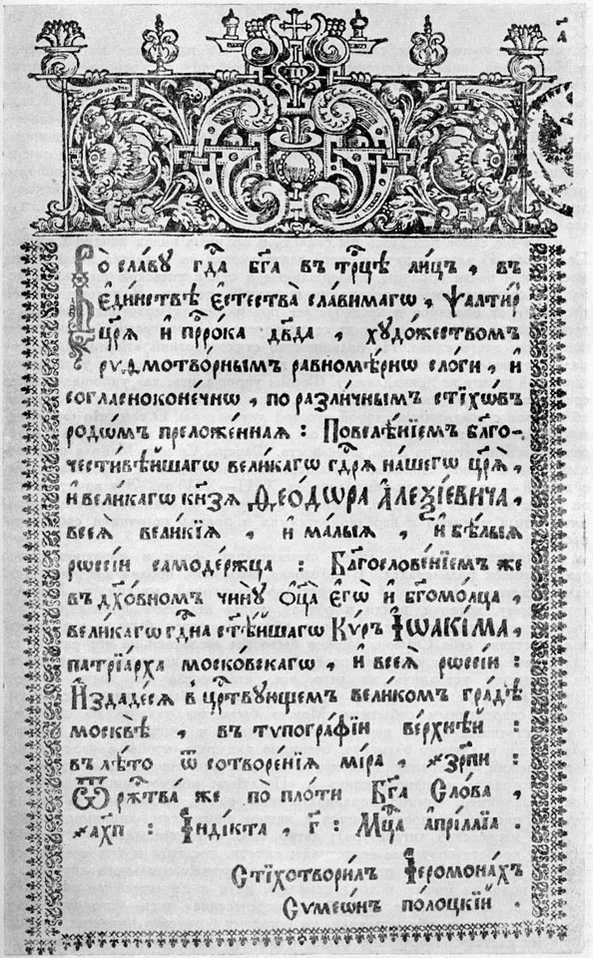 Во сла́ву гдⷭ҇а бг҃а въ трⷪ҇цѣ лицъ, въ
є҆ди́нствѣ є҆стества̀ сла́вимагѡ, Ѱалти́р
цр҃ѧ̀ и҆ прⷪ҇ро́ка дв҃да, худо́жествомъ
риѳмотво́рнымъ равномѣ́рнѡ сло́ги, и҆
согласноконе́чнѡ, по разли́чнымъ стїхѡ́въ
родѡ́мъ преложе́ннаѧ: Повелѣ́нїемъ бл҃го-
чести́вѣйшагѡ вели́кагѡ гдⷭ҇рѧ на́шегѡ цр҃ѧ̀,
и҆ вели́кагѡ кн҃зѧ Ѳео́дѡра А҆леѯі́евича,
всеѧ̀ вели́кїѧ, и҆ ма́лыѧ, и҆ бѣ́лыѧ
рѡссі́и самоде́ржца: Бл҃гослове́нїемъ же
въ дх҃о́вномъ чи́ну ѻ҆ц҃а̀ є҆гѡ̀ и҆ бг҃омо́лца,
вели́кагѡ гдⷭ҇на ст҃ѣ́йшагѡ Кѵ́ръ І҆ѡакі́ма,
патрїа́рха моско́вскагѡ, и҆ всеѧ̀ рѡссі́и:
И҆здаде́сѧ в црⷭ҇твующемъ вели́комъ гра́дѣ
москвѣ̀, въ тѵпогра́фїи ве́рхнѣй:
въ лѣ́то ѿ сотворе́нїѧ мі́ра, ҂зрп҃и:
Ѿ ржⷭ҇тва́ же по пло́ти Бг҃а Сло́ва,
҂ах҃п: І҆нді́кта, г҃: Мцⷭ҇а а҆прі́лїа.
Стїхотвори́лъ І҆еромона́хъ
Сѵмеѡ́нъ по́лоцкїй.